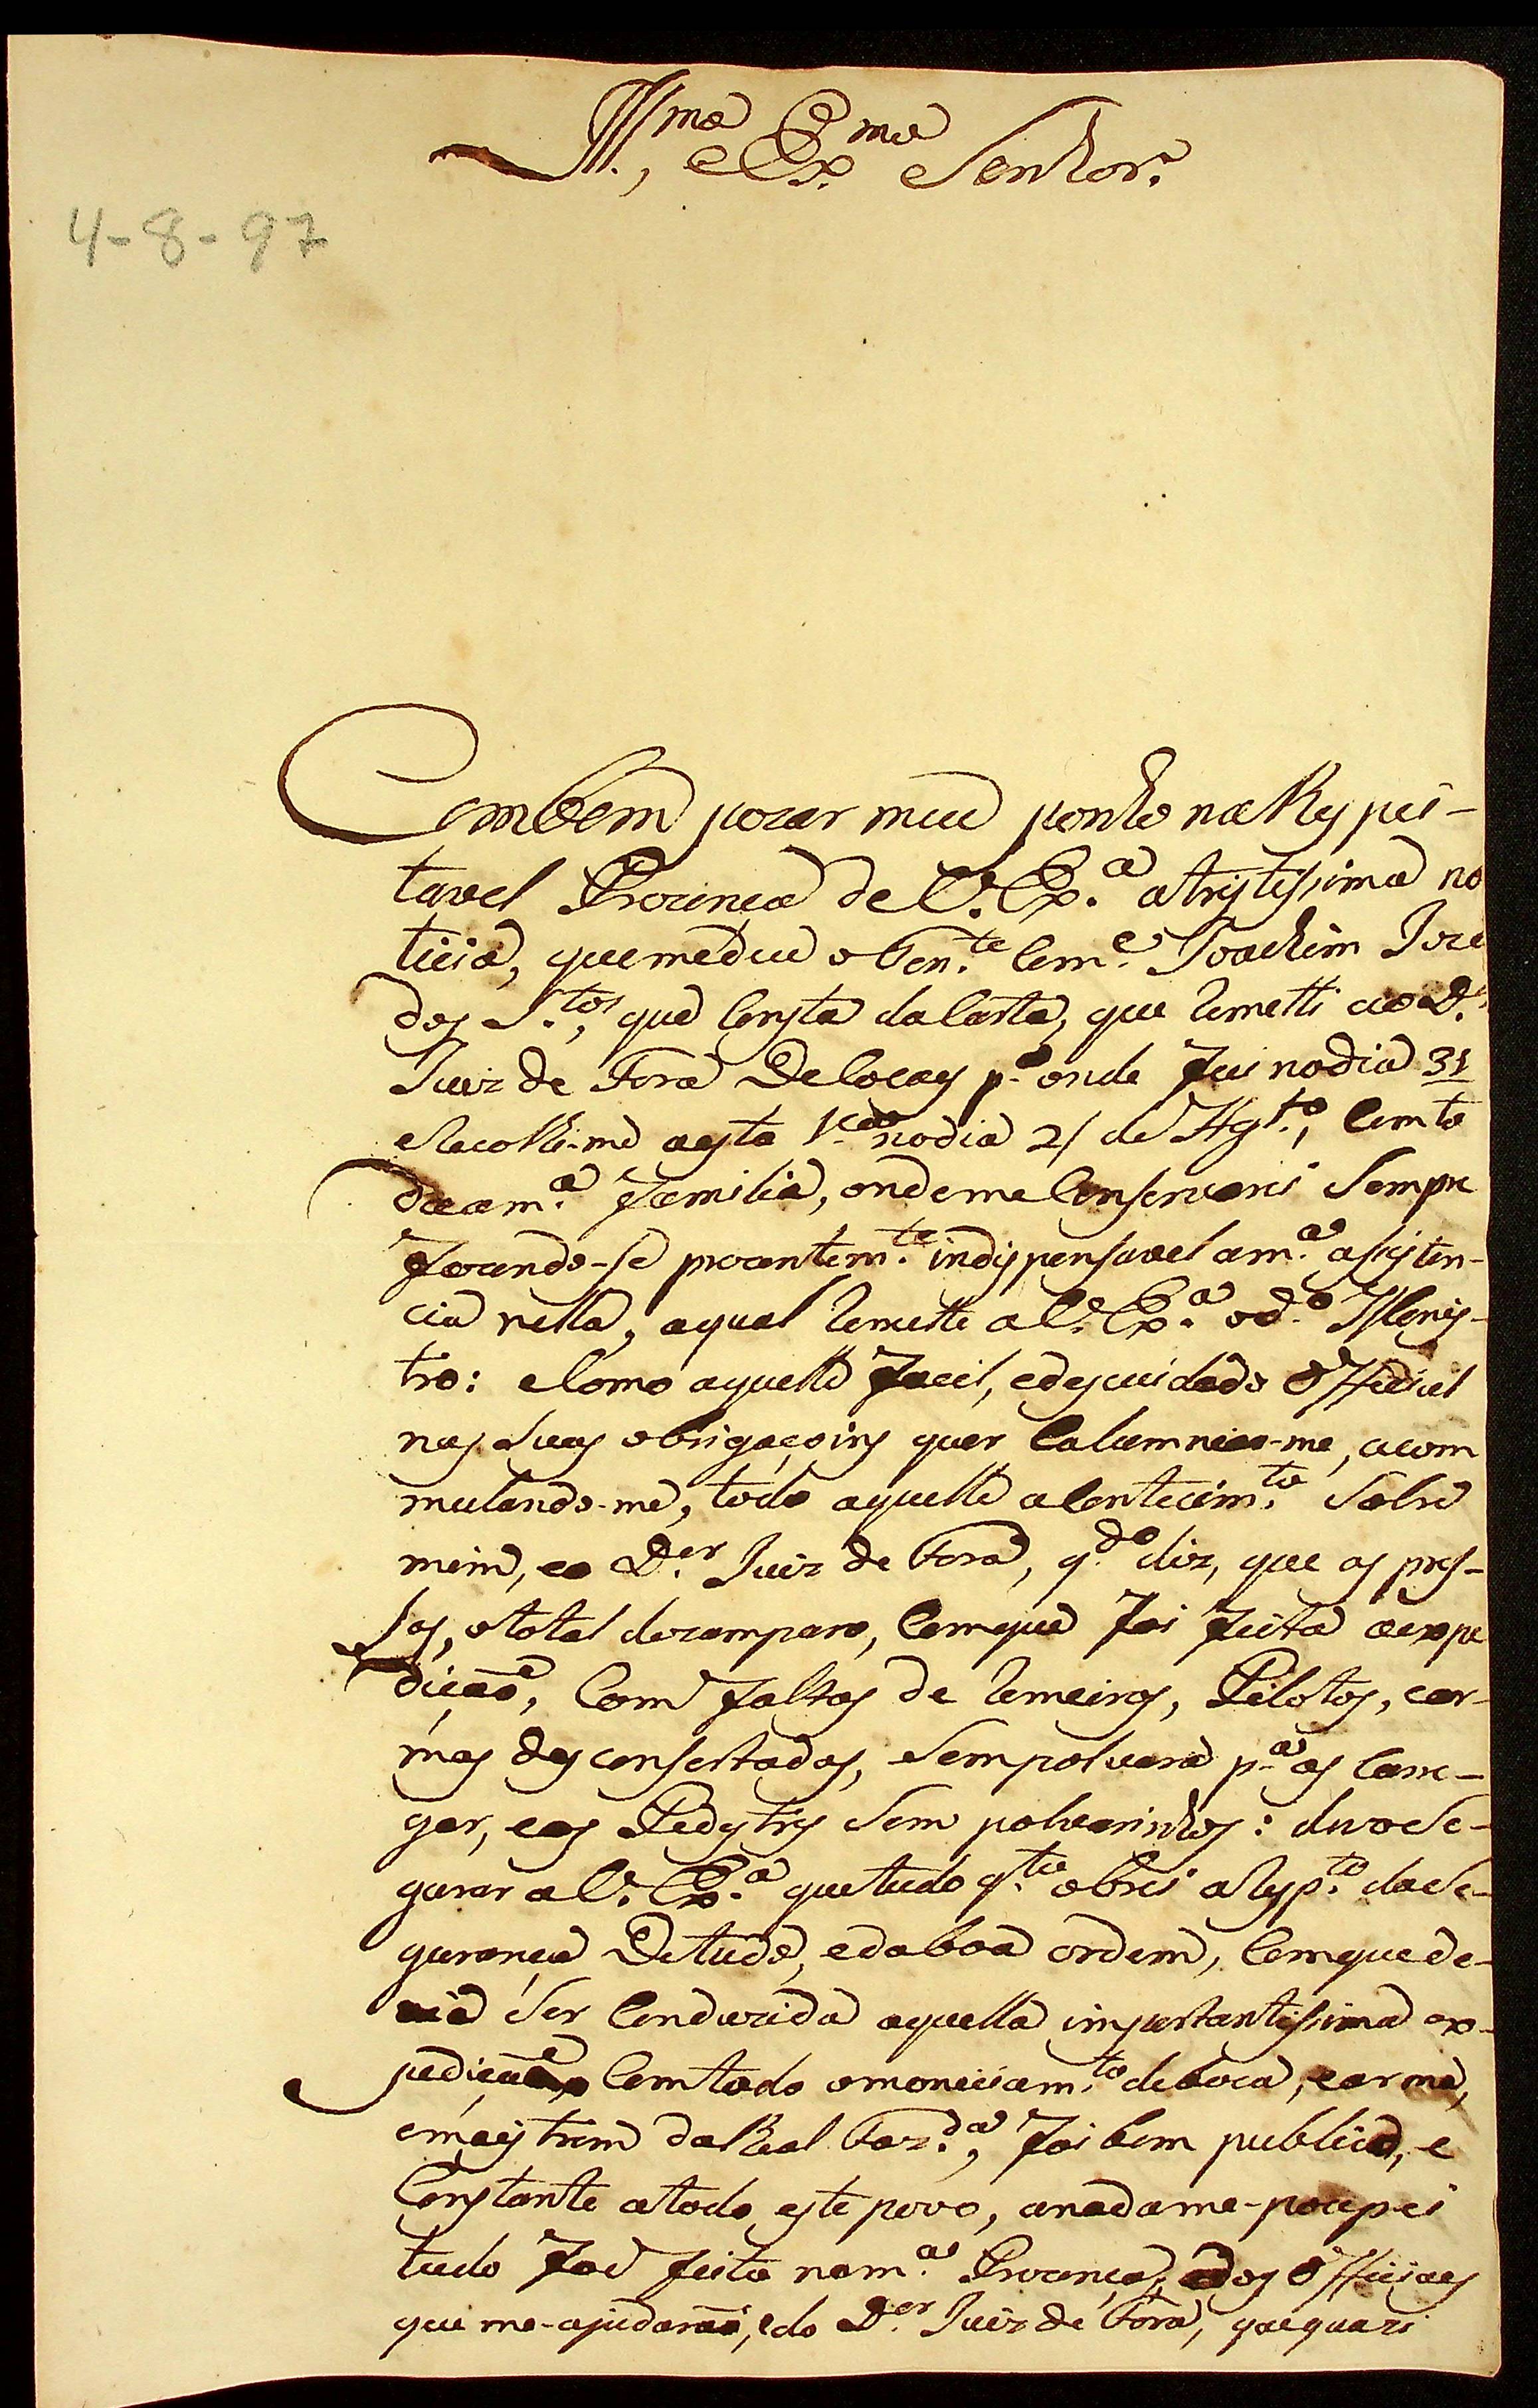 Ill.mo, e Ex.mo Senhor.
4-8-97
Com bem pezar meu ponho na Respei-
tavel Prezença de V. Ex.a a tristissima no
ticia, que me deu o Ten.te Com.e Joachim Joze
dos S.tos, que Consta da Carta, que Remetti ao D.r
Juiz de Fora De Cocaes p.a onde fui no dia 31
e Recolhi-me a esta no dia 2 de Ag.to, Com to
da a m.a familia, onde me Conservarei Sempre
fazendo-se prezentem.te indispensavel a m.a assisten-
cia nella, a qual Remette a V. Ex.a o d.o Menis-
tro: e Como aquelle facil, e descuidado Official
nas Suas obrigaçoins quer Calumniar-me, acom
mulando-me, todo aquelle aContecim.to Sobre
mim, e o D.or Juiz de Fora, q.do diz, que os pres-
sos, o total dezamparo, Com que foi feita a expe
dição, Com faltas de Remeiros, Pilotos, e ar-
mas desconsertadas, e Sem polvora p.a as Carre-
gar, e os Pedestres Sem polvarinhos: devo Se-
gurar a V. Ex.a que tudo q.to obrei a Resp.to da Se-
gurança De tudo, e da boa ordem, Com que de-
via Ser Conduzida aquella importantissima ex-
pedição Com todo o moniciam.to de boca, e arma,
e mais trem da Real Faz.da, foi bem publico, e
Constante a todo este povo, a nada me-poupei
tudo foi feito na m.a Prezença, e dos Officiaes
que me-ajudarão, e do D.or Juiz de Fora, que quazi